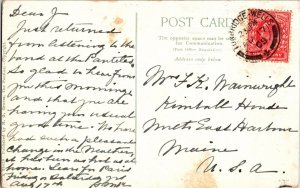 Dear J
Just returned
from listening to the
band at the Pantiles
So glad to hear from
you this morning
and that you are
having your usual
good time. We have
had such a pleasant
change in the weather
it has been so hot as at
home. Sear for Paris
Friday or Saturday 2nd
Aug 17th
POST CARD
The opposite space may be used
for Communication.
(Post Office Regulation).
Address only below.
TUNBRIDGE WELLS
Mrs. F. K. Wainwright
Kimball House
North East Harbour
Maine
U.S.A